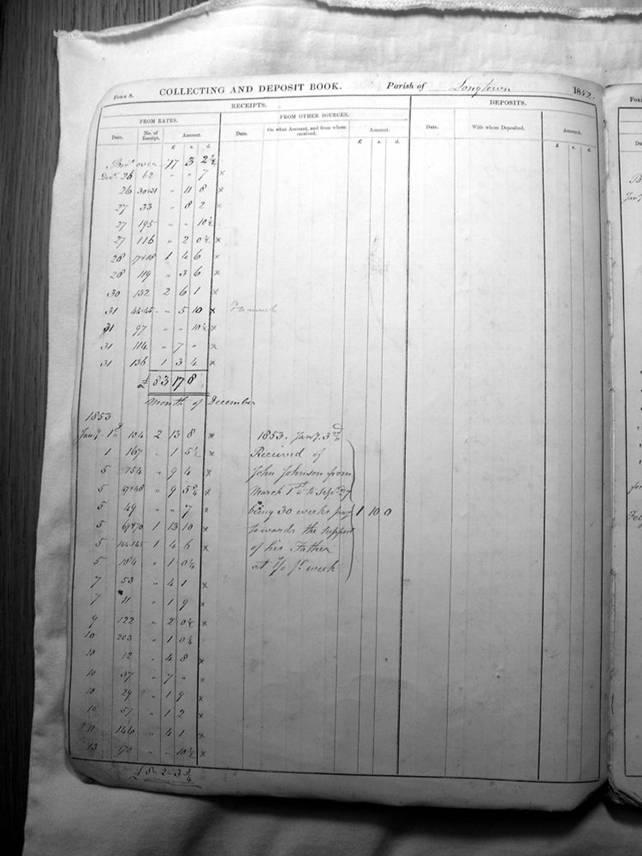 Form 8. COLLECTING AND DEPOSIT BOOK. Parish of Longtown 1852.
RECEIPTS. DEPOSITS.
FROM RATES. FROM OTHER SOURCES.
Date. No. of Receipt. Amount. Date. On what Account, and from whom received. Amount. Date. With whom Deposited. Amount.
£ s. d. £ s. d. £ s. d.
over 17 3 2½
26 62 " " 7 ×
26 " 11 8 ×
27 33 " 8 2 ×
27 195 " " 10½
27 116 " 2 0½ ×
28 1 4 6 ×
28 119 " 3 6 ×
30 132 2 6 1 ×
31 " 5 10 ×
31 97 " " 10½ ×
31 114 " 7 " ×
31 136 1 3 4 ×
Month of December
1853
Jany 1st 104 2 13 8 × 1853. Jany 3rd
1 167 " 1 5½ Received of
5 " 9 4 × John Johnson from
5 " 9 5½ × March 1st to Sepr 27
5 49 " " 7 × being 30 weeks pay 1 10 0
5 1 13 10 × towards the support
5 1 4 6 × of his Father
5 184 " 1 0½ at 1/0 pr week
7 53 " 4 1 ×
7 11 " 1 9 ×
9 122 " 2 0½ ×
10 203 " 1 0½
10 12 " 4 8 ×
10 37 " 7 " ×
10 29 " 1 9 ×
10 57 " 1 2 ×
146 " 4 1 ×
13 " " 10½ ×